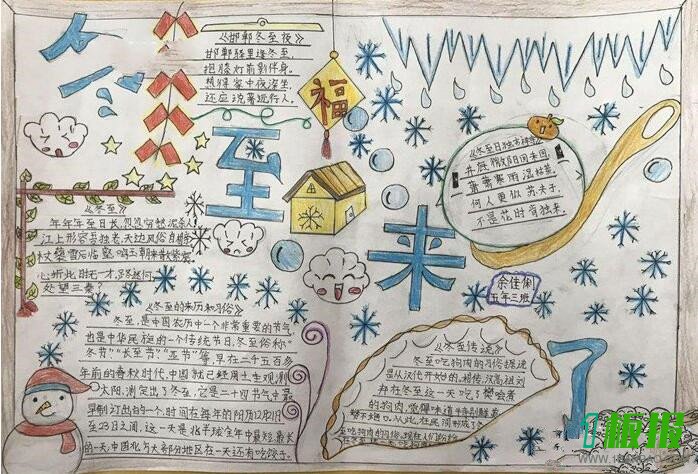 冬至来了
《邯郸冬至夜》
邯郸驿里逢冬至，
抱膝灯前影伴身。
想得家中夜深坐，
还应说着远行人。
福
《冬至日独
井底微阳回未回，
萧萧寒雨湿枯荄。
何人更似苏夫子，
不是花时肯独来。
《冬至》
年年至日长
江上形容吾独老，天边风俗自
杖藜雪后临
心折此时无一寸，路迷何
处望三秦？
余佳俐
五年三班
《冬至的来历和习俗》
冬至，是中国农历中一个非常重要的节气，
也是中华民族的一个传统节日，冬至俗称“
冬节”“长至节”“亚节”等，早在二千五百多
年前的春秋时代，中国就已经用土圭观测
太阳，测定出了冬至，它是二十四节气中最
早制订出的一个，时间在每年的阳历12月21
至23日之间，这一天是北半球全年中最短
的一天，中国北方大部分地区在这一天还有吃饺子
《冬至传说》
冬至吃狗肉的习俗据说
是从汉代开始的，相传，汉高祖刘
邦在冬至这一天吃了樊哙煮
的狗肉，觉得味道特别鲜美，
赞不绝口。从此，在民间形成了冬
至吃狗肉的习俗，现在人们纷纷
板报